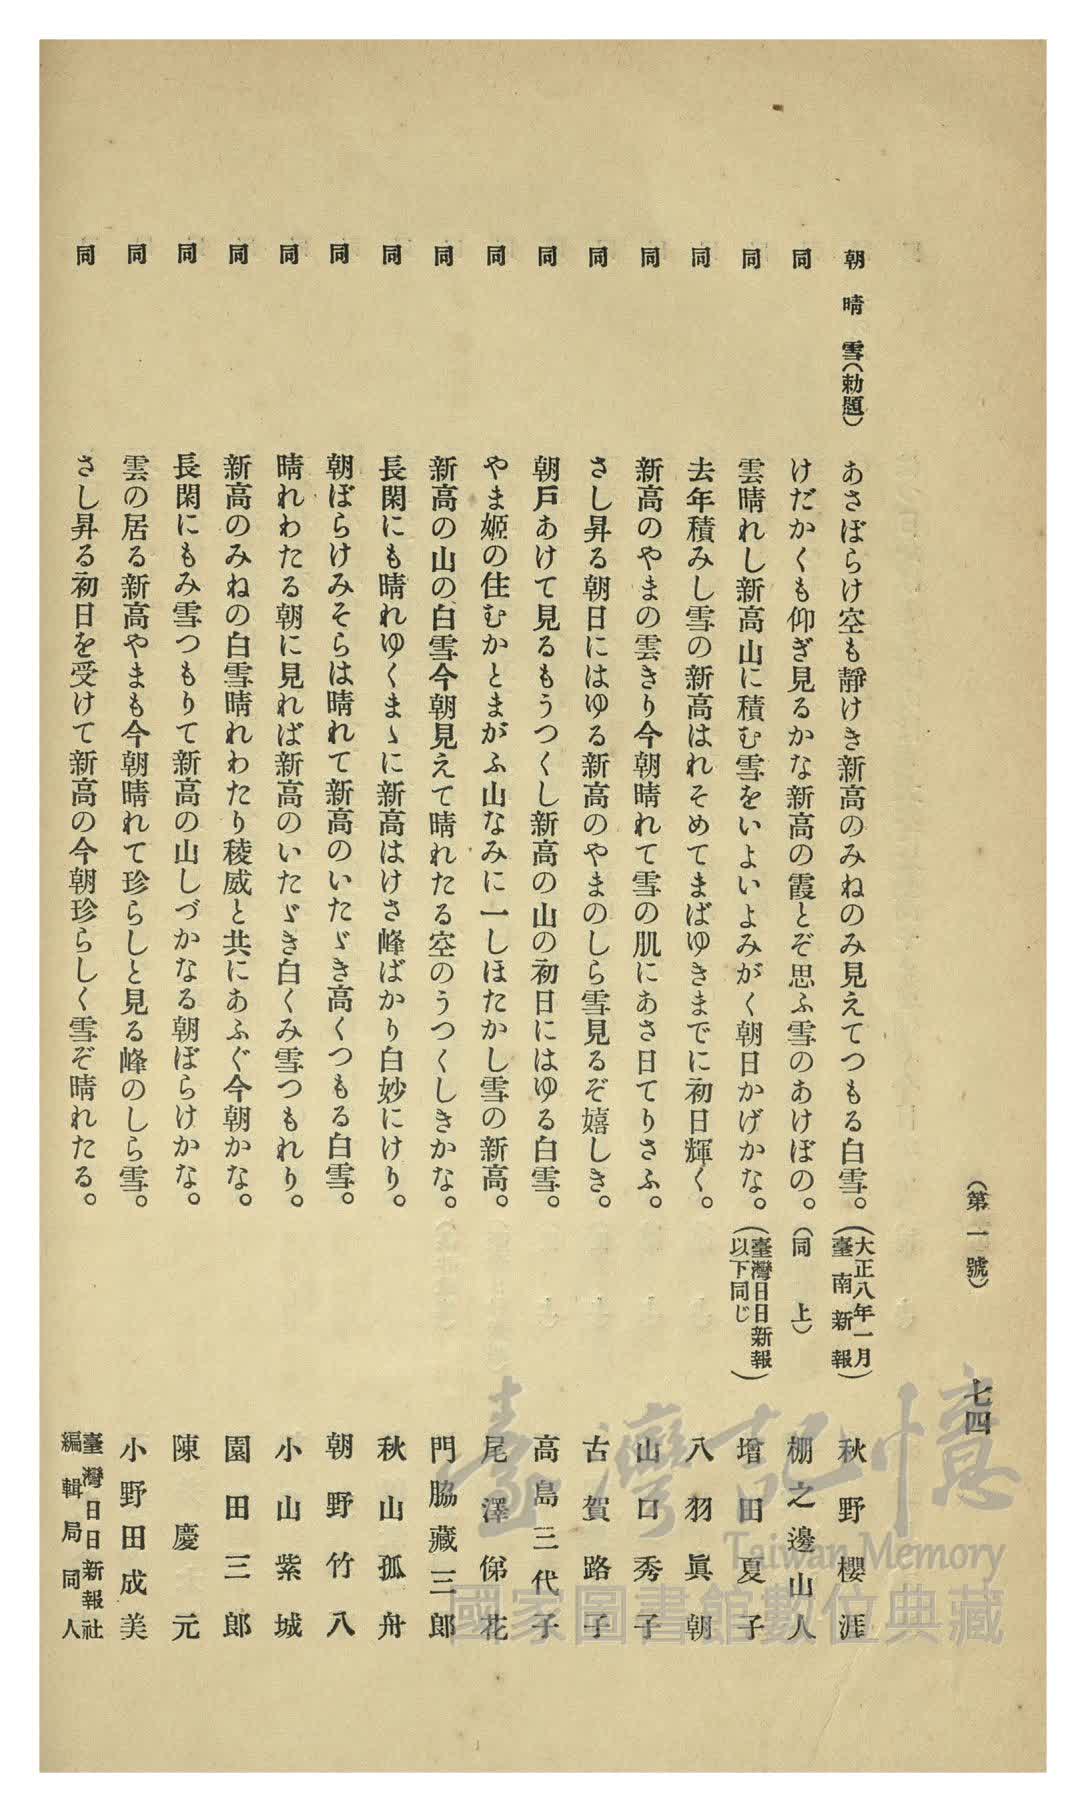 (第一號) 七四
朝晴雪(勅題) あさぼらけ空も靜けき新高のみねのみ見えてつもる白雪。 (大正八年一月臺南新報) 秋野櫻涯
同 けだかくも仰ぎ見るかな新高の霞とぞ思ふ雪のあけぼの。 (同上) 棚之邊山人
同 雲晴れし新高山に積む雪をいよいよみがく朝日かげかな。 (臺灣日日新報以下同じ) 增田夏子
同 去年積みし雪の新高はれそめてまばゆきまでに初日輝く。 八羽眞朝
同 新高のやまの雲きり今朝晴れて雪の肌にあさ日てりさふ。 山口秀子
同 さし昇る朝日にはゆる新高のやまのしら雪見るぞ嬉しき。 古賀路子
同 朝戸あけて見るもうつくし新高の山の初日にはゆる白雪。 高島三代子
同 やま姬の住むかとまがふ山なみに一しほたかし雪の新高。 尾澤俤花
同 新高の山の白雪今朝見えて晴れたる空のうつくしきかな。 門脇藏三郎
同 長閑にも晴れゆくまゝに新高はけさ峰ばかり白妙にけり。 秋山孤舟
同 朝ぼらけみそらは晴れて新高のいたゞき高くつもる白雪。 朝野竹八
同 晴れわたる朝に見れば新高のいたゞき白くみ雪つもれり。 小山紫城
同 新高のみねの白雪晴れわたり稜威と共にあふぐ今朝かな。 園田三郎
同 長閑にもみ雪つもりて新高の山しづかなる朝ぼらけかな。 陳慶元
同 雲の居る新高やまも今朝晴れて珍らしと見る峰のしら雪。 小野田成美
同 さし昇る初日を受けて新高の今朝珍らしく雪ぞ晴れたる。 臺灣日日新報社編輯局同人
臺灣記憶
Taiwan Memory
國家圖書館數位典藏